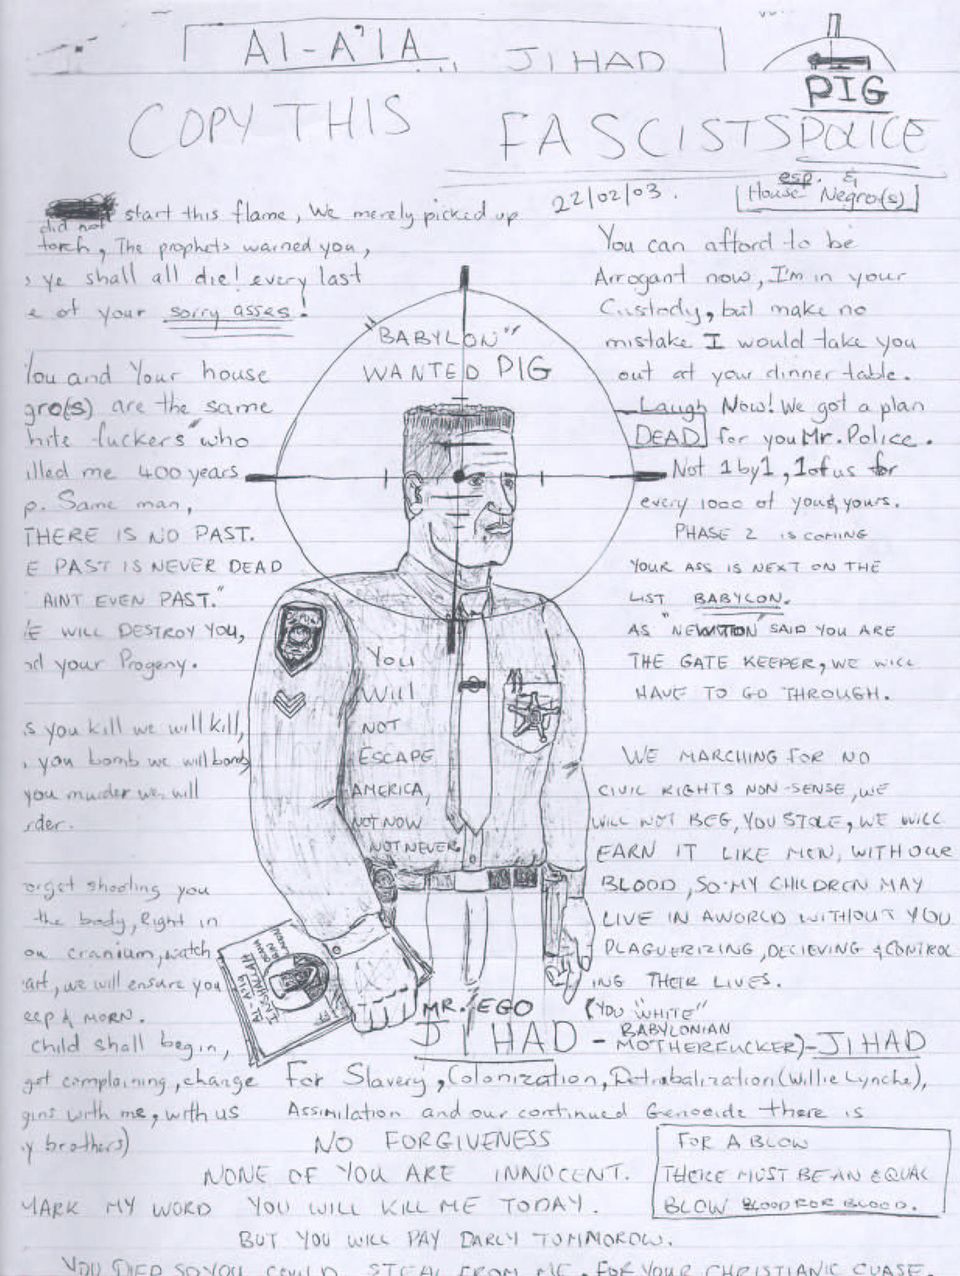 A1-A'1A JIHAD
PIG
COPY THIS FASCISTS POLICE
22/02/03.
esp. &
House Negro(s)
start this flame, We merely picked up
did not
torch, The prophets warned you,
ye shall all die! every last
of your sorry asses!
You and Your house
gro(s) are the same
fuckers" who
illed me 400 years
p. Same man,
THERE IS NO PAST.
E PAST IS NEVER DEAD
AINT EVEN PAST."
E WILL DESTROY YOU,
nd your Progeny.
s you kill we will kill,
, you bomb we will bomb
you murder we will
rder.
orget shooting you
the body, Right in
ou cranium, watch
art, we will ensure you
eep & MORN.
Child shall begin,
get complaining, change
gins with me, with us
y brothers)
"BABYLON"
WANTED PIG
You
Will
NOT
ESCAPE
AMERICA,
NOT NOW
NOT NEVER
INSHALLAH
You can afford to be
Arrogant now, I'm in your
Custody, but make no
mistake I would take you
out at your dinner table.
Laugh Now! We got a plan
DEAD for you Mr. Police.
Not 1 by 1, 1 of us for
every 1000 of you & yours.
PHASE 2 IS COMING
YOUR ASS IS NEXT ON THE
LIST BABYLON.
AS "NEWTON" SAID YOU ARE
THE GATE KEEPER, WE WILL
HAVE TO GO THROUGH.
WE MARCHING FOR NO
CIVIL RIGHTS NON-SENSE, WE
WILL NOT BEG, YOU STOLE, WE WILL
EARN IT LIKE MEN, WITH OUR
BLOOD, SO MY CHILDREN MAY
LIVE IN A WORLD WITHOUT YOU
PLAGUERIZING, DECIEVING & CONTROL
ING THEIR LIVES.
MR. EGO (YOU "WHITE"
JIHAD - BABYLONIAN
MOTHERFUCKER) - JIHAD
For Slavery, Colonization, Detribalization (Willie Lynche),
Assimilation and our continued Genocide there is
NO FORGIVENESS
NONE OF YOU ARE INNOCENT.
MARK MY WORD YOU WILL KILL ME TODAY.
BUT YOU WILL PAY DARLY TOMMOROW.
FOR A BLOW
THERE MUST BE AN EQUAL
BLOW BLOOD FOR BLOOD.
YOU DIED SO YOU COULD STEAL FROM ME, FOR YOUR CHRISTIANIC CUASE.